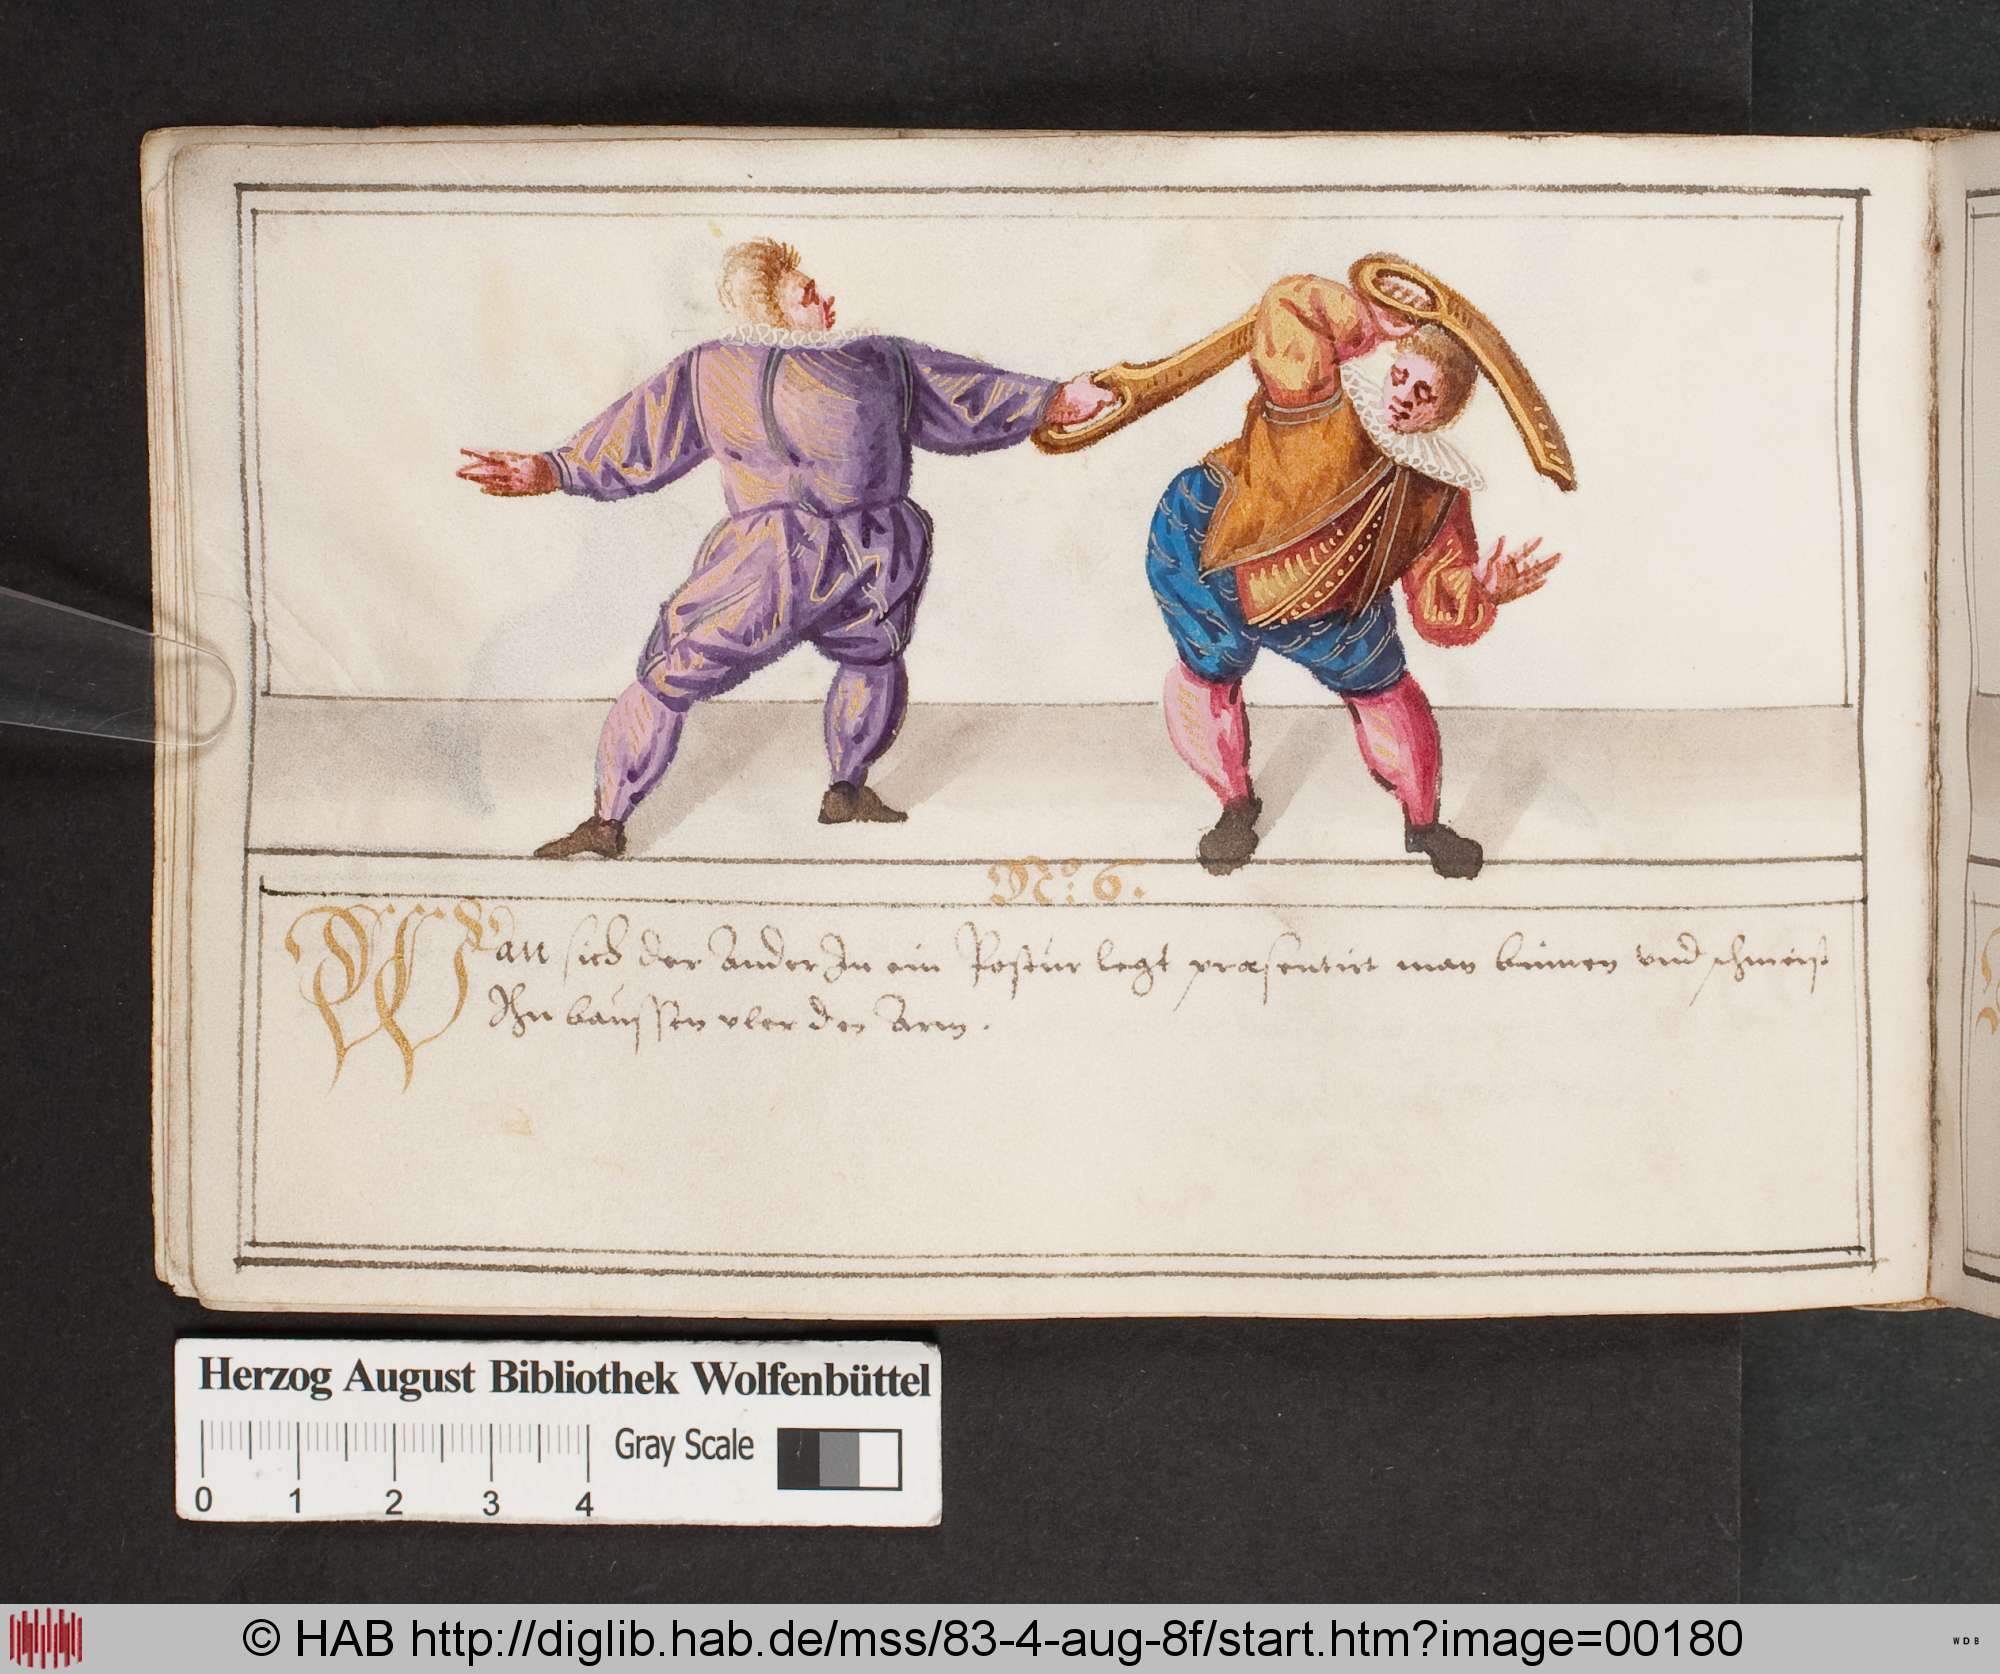 No: 6.
Wan sich der Ander In ein Postur legt præsentirt man binnen vnd schmeist
Ihn baussen vber den Arm.
Herzog August Bibliothek Wolfenbüttel
Gray Scale
0 1 2 3 4
© HAB http://diglib.hab.de/mss/83-4-aug-8f/start.htm?image=00180
WDB